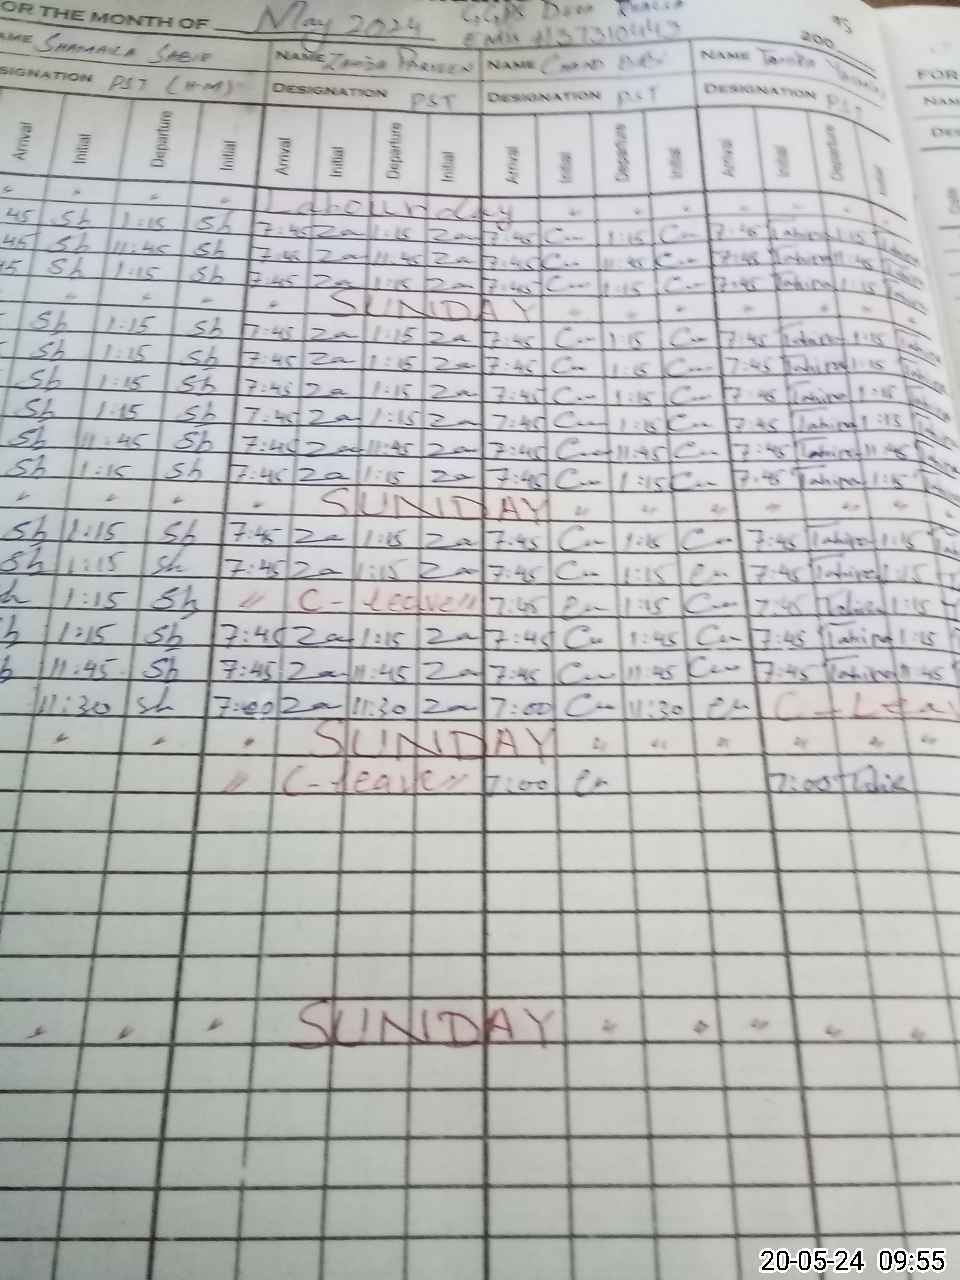 OR THE MONTH OF May 2024 GGPS
EMIS #37310443 200
AME SHAMAILA SABIR NAME PARVEEN NAME CHAND BIBI NAME FOR
SIGNATION PST (H-M) DESIGNATION PST DESIGNATION PST DESIGNATION PST NAM
Arrival Initial Departure Initial Arrival Initial Departure Initial Arrival Initial Departure Initial Arrival Initial Departure Initial DES
" " " " Labour day " " " " " " "
45 Sh 1:15 Sh 7:45 Za 1:15 Za 7:45 Cm 1:15 Cm 7:45 Tahira 1:15 Tahira
45 Sh 11:45 Sh 7:45 Za 11:45 Za 7:45 Cm 11:45 Cm 7:45 Tahira 11:45 Tahira
45 Sh 1:15 Sh 7:45 Za 1:15 Za 7:45 Cm 1:15 Cm 7:45 Tahira 1:15 Tahira
" " " " SUNDAY " " " " " " "
Sh 1:15 Sh 7:45 Za 1:15 Za 7:45 Cm 1:15 Cm 7:45 Tahira 1:15 Tahira
Sh 1:15 Sh 7:45 Za 1:15 Za 7:45 Cm 1:15 Cm 7:45 Tahira 1:15 Tahira
Sh 1:15 Sh 7:45 Za 1:15 Za 7:45 Cm 1:15 Cm 7:45 Tahira 1:15 Tahira
Sh 1:15 Sh 7:45 Za 1:15 Za 7:45 Cm 1:15 Cm 7:45 Tahira 1:15 Tahira
Sh 11:45 Sh 7:45 Za 11:45 Za 7:45 Cm 11:45 Cm 7:45 Tahira 11:45 Tahira
Sh 1:15 Sh 7:45 Za 1:15 Za 7:45 Cm 1:15 Cm 7:45 Tahira 1:15 Tahira
" " " " SUNDAY " " " " " "
Sh 1:15 Sh 7:45 Za 1:15 Za 7:45 Cm 1:15 Cm 7:45 Tahira 1:15
Sh 1:15 Sh 7:45 Za 1:15 Za 7:45 Cm 1:15 Cm 7:45 Tahira 1:15
h 1:15 Sh " C-leave " 7:45 Cm 1:15 Cm 7:45 Tahira 1:15
h 1:15 Sh 7:45 Za 1:15 Za 7:45 Cm 1:45 Cm 7:45 Tahira 1:15
11:45 Sh 7:45 Za 11:45 Za 7:45 Cm 11:45 Cm 7:45 Tahira 11:45
11:30 Sh 7:00 Za 11:30 Za 7:00 Cm 11:30 Cm C-Lea
" " " SUNDAY " " " " " "
" C-leave " 7:00 Cm 7:00
" " " SUNDAY " " " " "
20-05-24 09:55